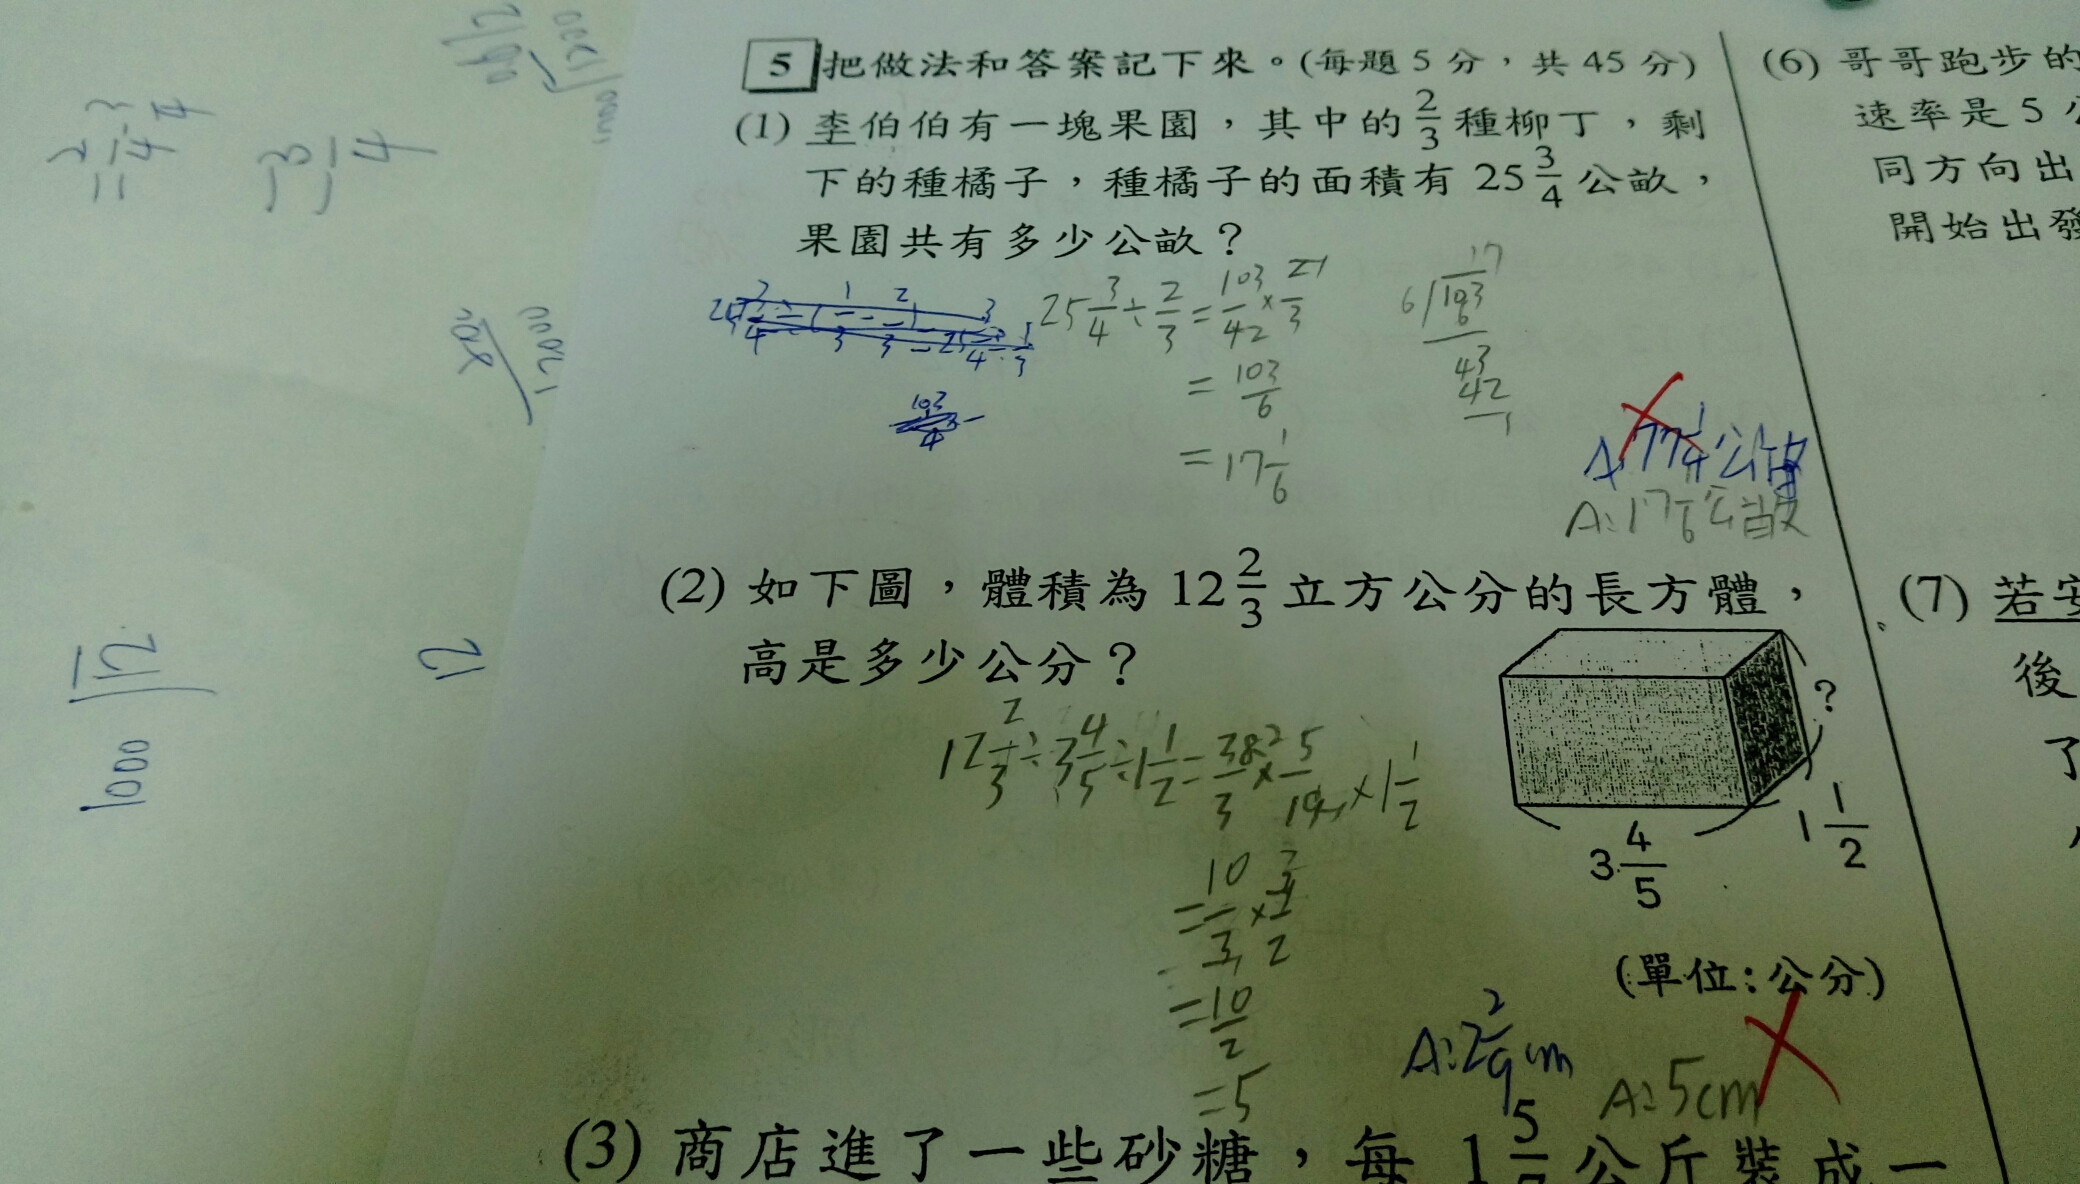 5 把做法和答案記下來。(每題 5 分，共 45 分)
(1) 李伯伯有一塊果園，其中的 2/3 種柳丁，剩
下的種橘子，種橘子的面積有 25 3/4 公畝，
果園共有多少公畝？
25 3/4 ÷ 2/3 = 103/42 × 21/3
= 103/6
= 17 1/6
17
6 103
6
43
42
1
A:77 1/4 公畝
A:17 1/6 公畝
(2) 如下圖，體積為 12 2/3 立方公分的長方體，
高是多少公分？
12 2/3 ÷ 3 4/5 ÷ 1 1/2 = 38 2/3 × 5/19 1 × 1 1/2
= 10/3 × 3/2
= 10/2
= 5
?
1 1/2
3 4/5
(單位：公分)
A:2 2/9 cm
A:5cm
(3) 商店進了一些砂糖，每 1 5/7 公斤裝成一
(6) 哥哥跑步的
速率是 5 公
同方向出
開始出發
(7) 若安
後
了
12
1000
12